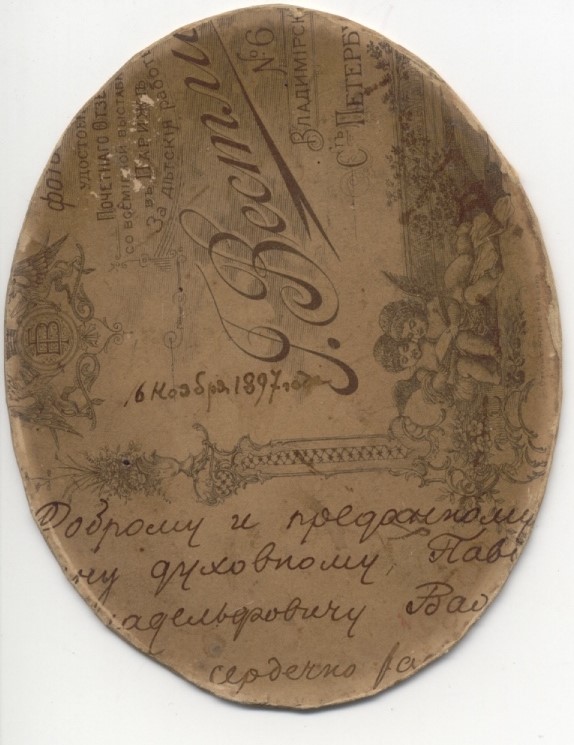 фото
удостое
Почетнаго Отзы
со всемірной выстав
въ Парижѣ
За дѣтскія работ
І. Вестли
№ 6
Владимірск
Стъ Петерб
16 Ноября 1897 года
Доброму и преданному
ну духовному, Пав
адельфовичу Вас
сердечно ра